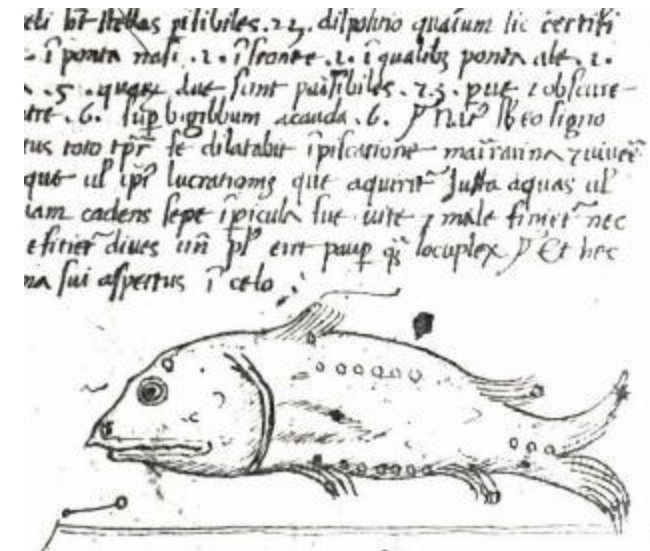 eli ht stellas visibiles .22. dispositio quarum sic certifi
. ī ponta nasi .1. ī fronte .1. ī qualibz ponta ale .1.
.5. quaꝝ due sunt passibiles .23. pue ⁊ obscure
tre .6. sup bigibbum a cauda .6. sb eo signo
tus toto tpr̄ se dilatabit ī piscatione marīarina ⁊ viuēt
que ul' ipī lucrationis que aquirit̄ Juxta aquas ul'
iam cadens sepe ī picula sue uite ⁊ male finiet̄ nec
efitiet̄ diues un̄ pl' erit paup qꝫ locuplex Et hec
na sui aspectus ī celo